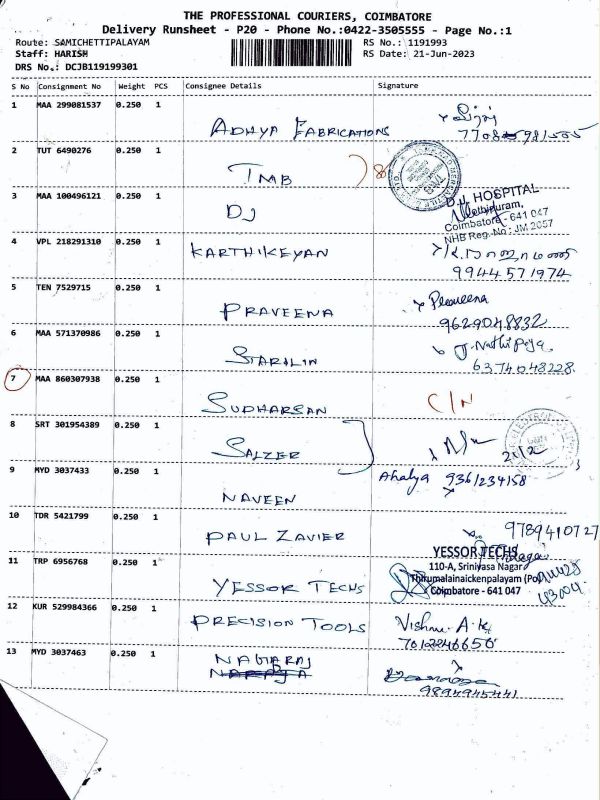 THE PROFESSIONAL COURIERS, COIMBATORE
Delivery Runsheet - P20 - Phone No.:0422-3505555 - Page No.:1
Route: SAMICHETTIPALAYAM RS No.: 1191993
Staff: HARISH RS Date: 21-Jun-2023
DRS No.: DCJB119199301
S No Consignment No Weight PCS Consignee Details Signature
1 MAA 299081537 0.250 1 ADHYA FABRICATIONS
2 TUT 6490276 0.250 1 TMB
3 MAA 100496121 0.250 1 DJ
D.J. HOSPITAL
Coimbatore - 641 047
NHB Reg. No: JM 2057
4 VPL 218291310 0.250 1 KARTHIKEYAN
9944571974
5 TEN 7529715 0.250 1 PRAVEENA Praveena
9629048832
6 MAA 571370986 0.250 1 STARILIN
6374048228
7 MAA 860307938 0.250 1 SUDHARSAN C/N
8 SRT 301954389 0.250 1 SALZER
9 MYD 3037433 0.250 1 NAVEEN Ahalya 9361234158
10 TDR 5421799 0.250 1 PAUL ZAVIER 9789410727
11 TRP 6956768 0.250 1 YESSOR TECHS
YESSOR TECHS
110-A, Srinivasa Nagar
Thirumalainaickenpalayam (Po)
Coimbatore - 641 047
12 KUR 529984366 0.250 1 PRECISION TOOLS Vishnu. A. K
7012246656
13 MYD 3037463 0.250 1 NAGARAJ
9894945441